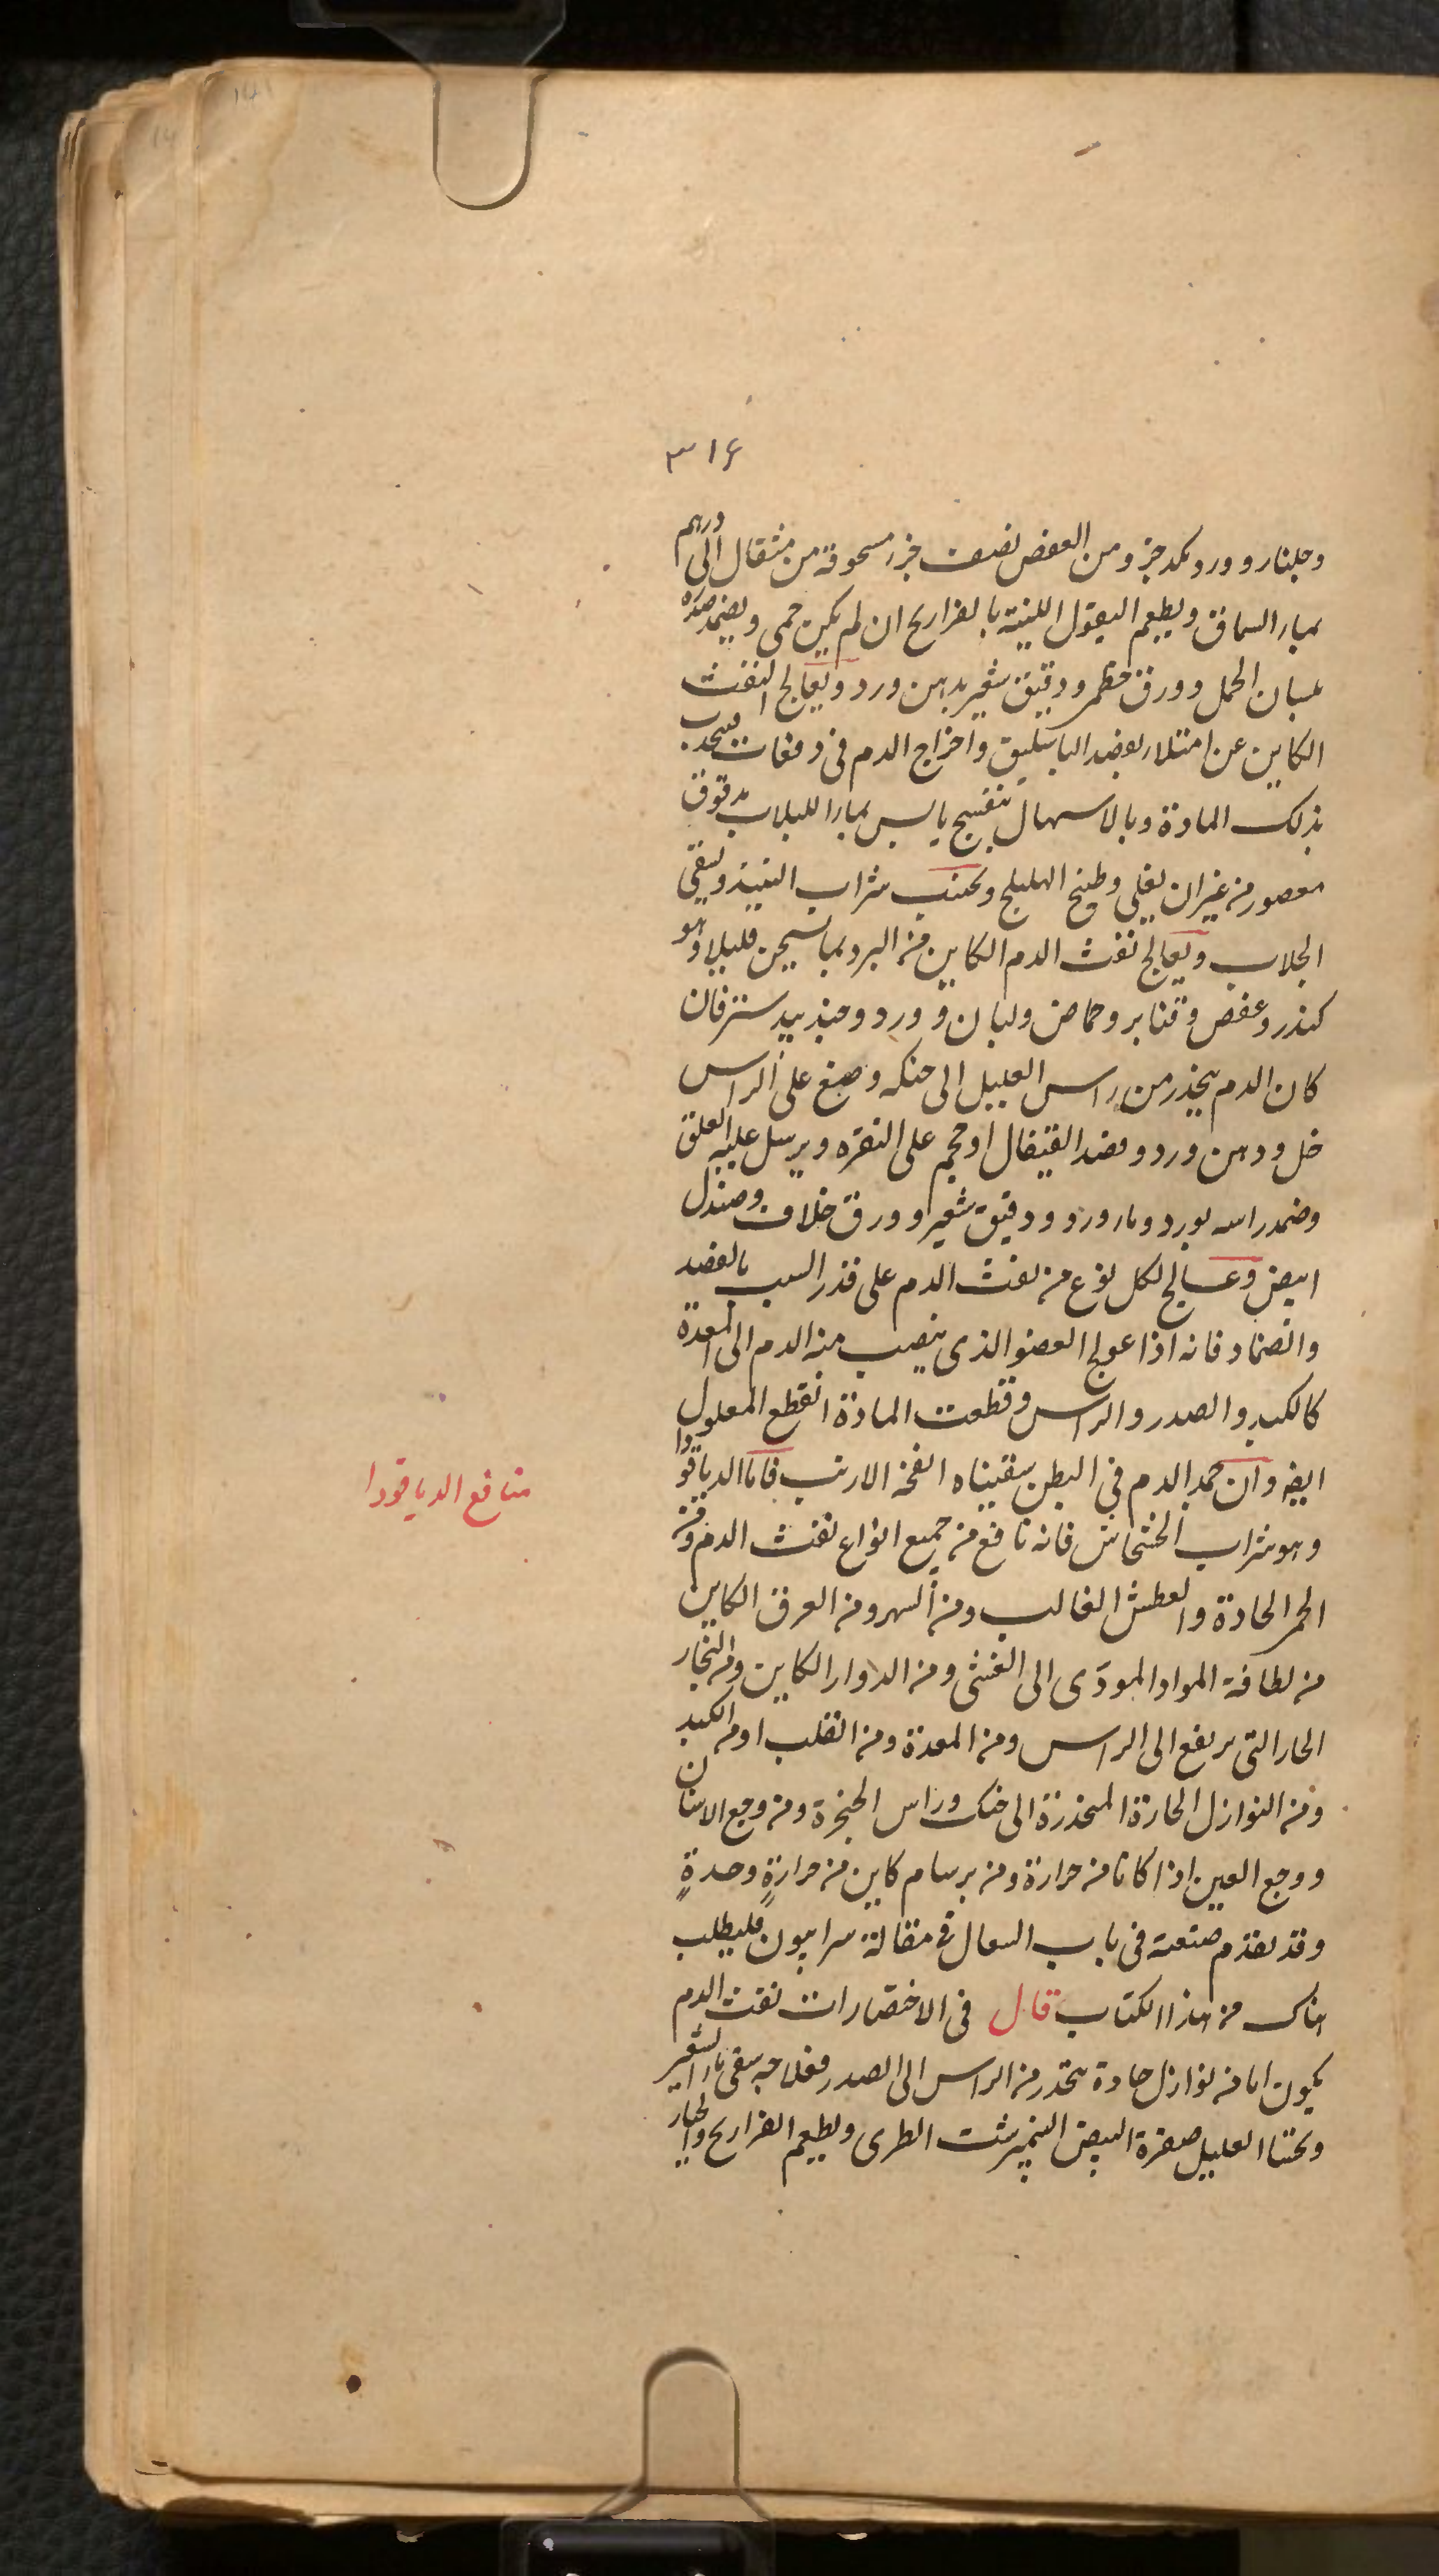 ٣١۶
وجلنار وورد مكد جزو ومن العفص نصف جزء مسحوقة من مثقال الى درهم
بماء السماق ويطعم البقول اللينة بالفراريج ان لم يكن حمى ويضمد صدره
بلسان الحمل وورق خطمى ودقيق شعير بدهن ورد ويعالج النفث
الكاين عن امتلاء بفصد الباسليق واخراج الدم فى دفعات فيجذب
بذلك المادة وبالاسهال بنفسج يابس بماء اللبلاب مدقوق
معصور من غير ان يغلى وطبيخ الهليلج ويجتنب شراب النبيذ ويسقى
الجلاب ويعالج نفث الدم الكاين من البرد بما يسخن قليلا وهو
كندر وعفص وحماض ولبان وورد وجندبيدستر فان
كان الدم ينحدر من راس العليل الى حنكه وضع على الراس
خل ودهن ورد وفصد القيفال او حجم على النقره ويرسل عليه العلق
وضمد راسه بورد وماء ورد ودقيق شعير وورق خلاف وصندل
ابيض وعالج لكل نوع من نفث الدم على قدر السبب بالفصد
والضماد فانه اذا عولج العضو الذى ينصب منه الدم الى المعدة
كالكبد والصدر والراس وقطعت المادة انقطع المعلول
ايضا وان جمد الدم فى البطن سقيناه انفحة الارنب فاما الدياقودا
وهو شراب الخشخاش فانه نافع من جميع انواع نفث الدم ومن
الحمى الحادة والعطش الغالب ومن السهر ومن العرق الكاين
من لطافة المواد المودى الى الغشى ومن الدوار الكاين ومن البخار
الحار التى يرتفع الى الراس ومن المعدة ومن القلب او من الكبد
ومن النوازل الحارة المنحدرة الى حنك وراس الحنجرة ومن وجع الاسنان
ووجع العين اذا كانا من حرارة ومن برسام كاين من حرارةٍ وحدةٍ
وقد تقدم صنعته فى باب السعال فى مقالة سرابيون فليطلب
هناك من هذا الكتاب قال فى الاختصارات نفث الدم
يكون اما من نوازل حادة تنحدر من الراس الى الصدر فعلاجه سقى ماء الشعير
ويحتسا العليل صفرة البيض النيمبرشت الطرى ويطعم الفراريج والخيار
منافع الدياقودا